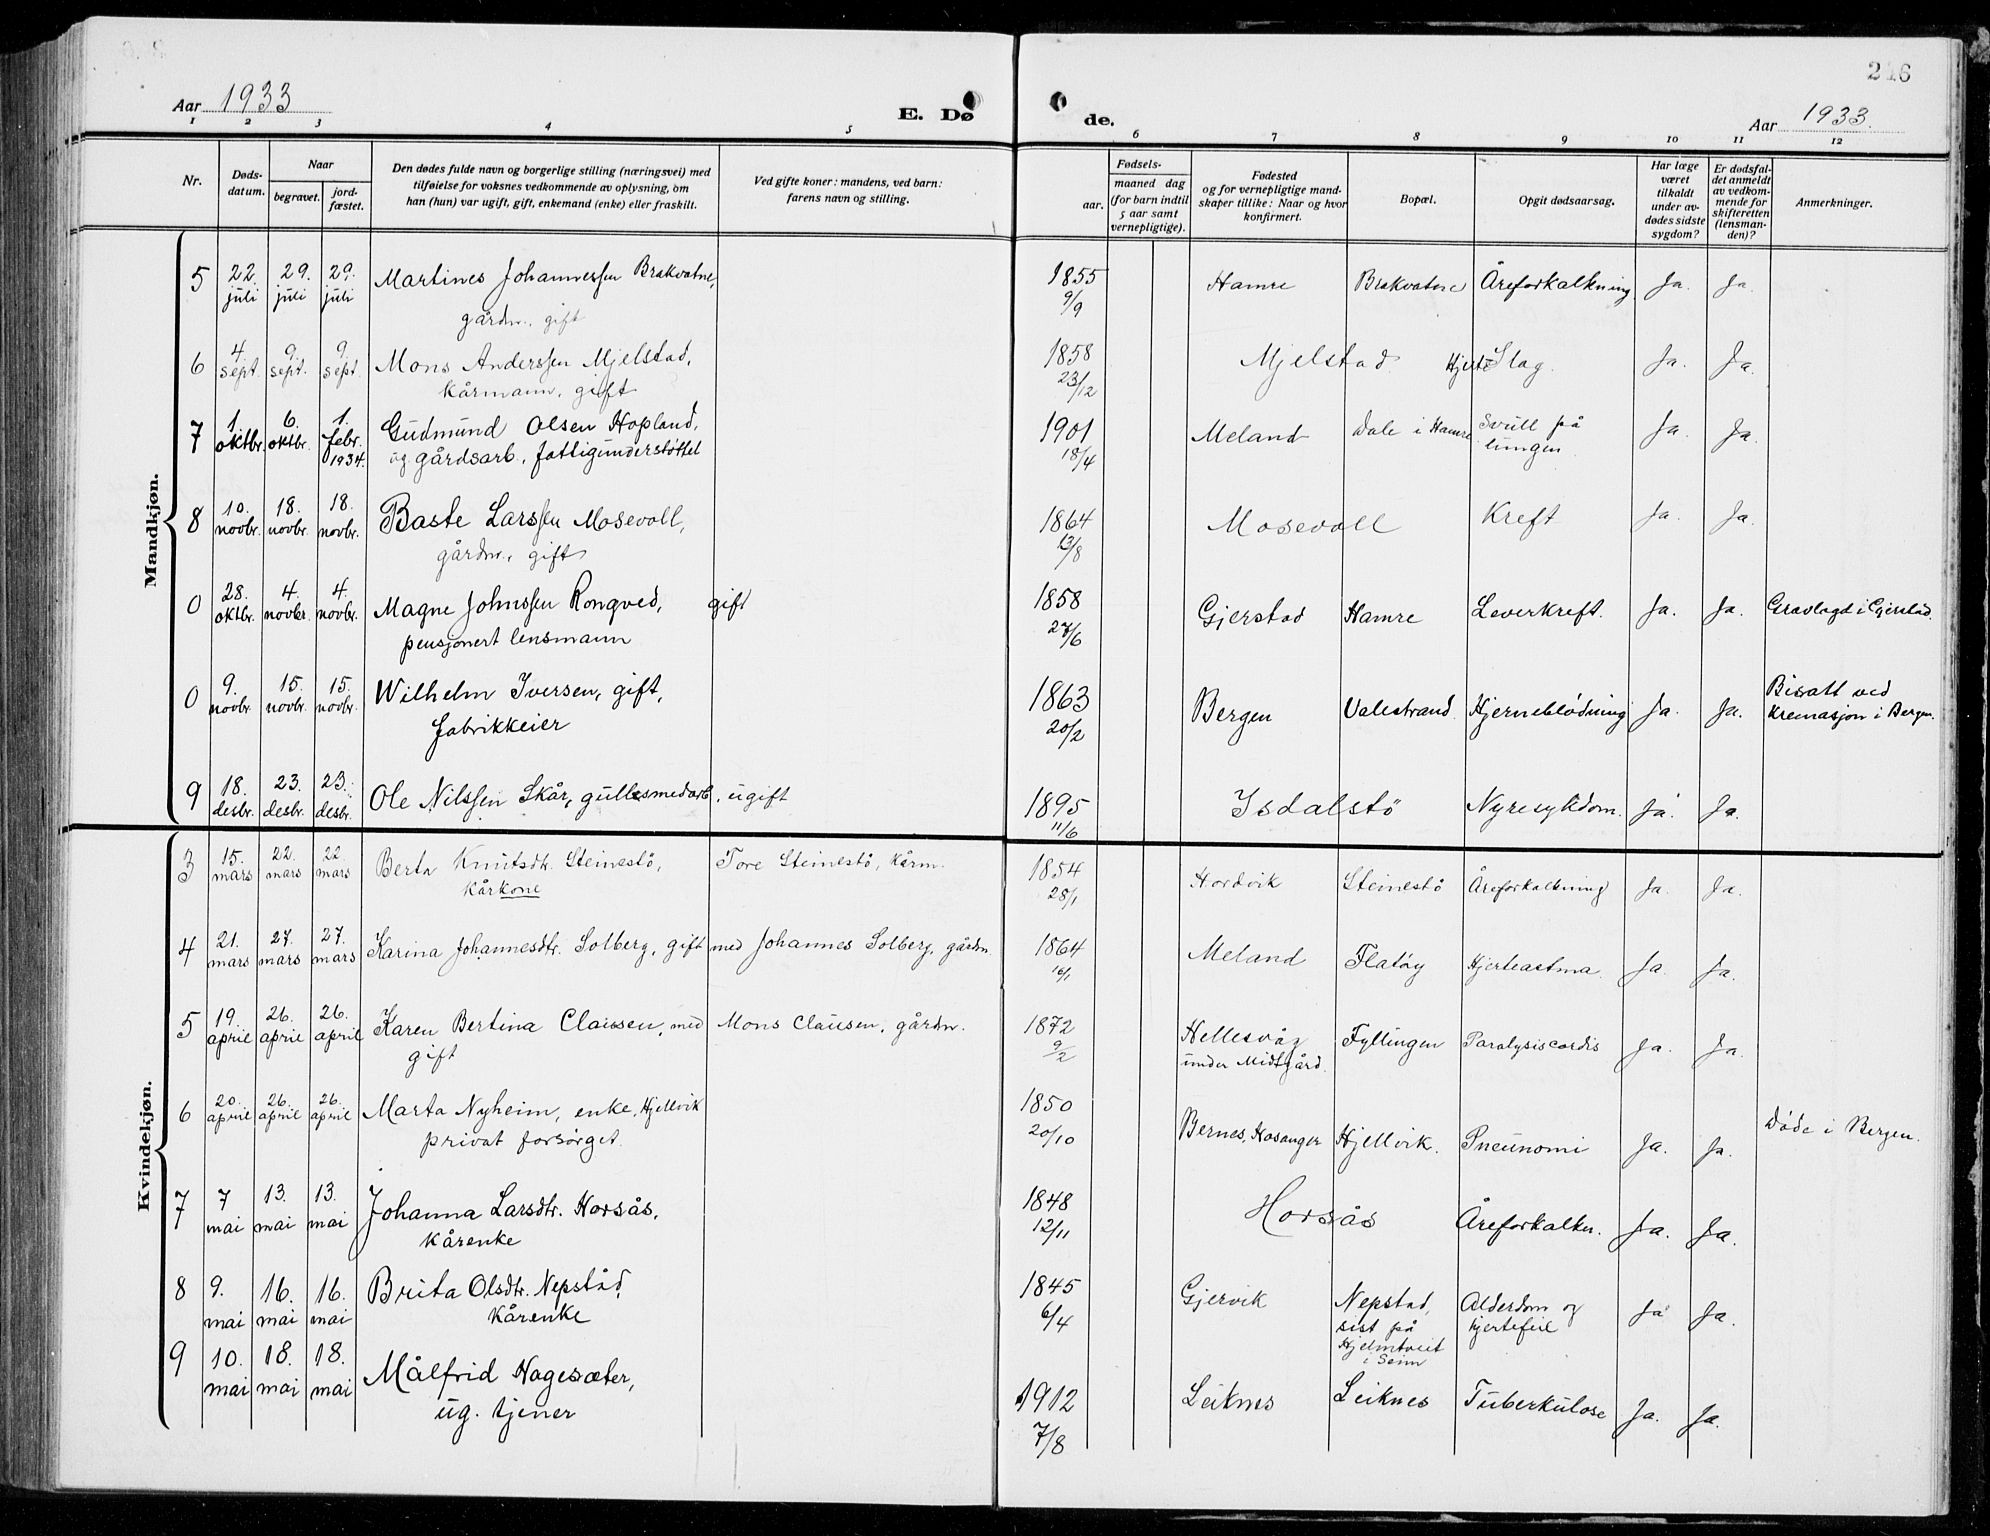 246
Aar 1933
E. Dø de.
Aar 1933.
1 2 3 4 5 6 7 8 9 10 11 12
Nr.
Døds-
datum.
Naar
begravet.
jord-
fæstet.
Den dødes fulde navn og borgerlige stilling (næringsvei) med
tilføielse for voksnes vedkommende av oplysning, om
han (hun) var ugift, gift, enkemand (enke) eller fraskilt.
Ved gifte koner: mandens, ved barn:
farens navn og stilling.
Fødsels-
aar.
maaned dag
(for barn indtil
5 aar samt
vernepligtige).
Fødested
og for vernepligtige mand-
skaper tillike: Naar og hvor
konfirmert.
Bopæl.
Opgit dødsaarsag.
Har læge
været
tilkaldt
under av-
dødes sidste
sygdom?
Er dødsfal-
det anmeldt
av vedkom-
mende for
skifteretten
(lensman-
den)?
Anmerkninger.
Mandkjøn.
5 22. juli 29. juli 29. juli Martines Johannessen Brakvatne, 1855 9/9 Hamre Brakvatne Åreforkalkning Ja. Ja.
gårdm., gift
6 4 sept. 9. sept. 9. sept. Mons Anderssen Mjelstad, 1858 23/12 Mjelstad Hjerte Slag. Ja. Ja.
Kårmann, gift
7 1. oktbr. 6. oktbr. 1. febr. 1934. Gudmund Olsen Hopland, 1901 18/4 Meland Dale i Hamre Svull på lungen Ja. Ja.
ug gårdsarb., fattigunderstøttet
8 10. novbr. 18. novbr. 18. novbr. Baste Larssen Mosevoll, 1864 13/8 Mosevoll Kreft Ja. Ja.
gårdm., gift
0 28. oktbr. 4. novbr. 4. novbr. Magne Johnssen Rongved, gift 1858 27/6 Gjerstad Hamre Leverkreft. Ja. Ja. Gravlagd i Gjerstad.
pensjonert lensmann
0 9. novbr. 15. novbr. 15. novbr. Wilhelm Iversen, gift, 1863 20/2 Bergen Valestrand Hjerneblødning Ja. Ja. Bisatt ved
fabrikkeier Kremasjon i Bergen.
9 18. desbr. 23. desbr. 23. desbr. Ole Nilssen Skår, gullsmedarb., ugift 1895 11/6 Isdalstö Nyresykdom. Ja. Ja.
Kvindekjøn.
3 15. mars 22. mars 22 mars Berta Knutsdtr. Steinestö, Tore Steinestö, kårm. 1854 28/1 Hordvik Steinestö Åreforkalkning Ja. Ja.
Kårkone
4 21. mars 27. mars 27. mars Karina Johannesdtr. Solberg, gift med Johannes Solberg, gårdm. 1864 16/1 Meland Flatöy Hjerteastma. Ja. Ja.
5 19. april 26. april 26. april Karen Bertina Clausen, med Mons Clausen, gårdm. 1872 9/2 Hellesvåg Fyllingen Paralysis cordis Ja. Ja.
gift under Midtgård.
6 20. april 26. april 26. april Marta Nyheim, enke, Hjellvik 1850 20/10 Bernes, Hosanger Hjellvik. Pneunomi Ja. Ja. Döde i Bergen.
privat forsörget.
7 7 mai 13. mai 13. mai Johanna Larsdtr. Horsås, 1848 12/11 Horsås Åreforkalkn. Ja. Ja.
Kårenke
8 9. mai 16. mai 16. mai Brita Olsdtr. Nepstad, 1845 6/4 Gjervik Nepstad, sist på Hjelmtveit i Seim Alderdom og hjertefeil Ja Ja.
Kårenke
9 10. mai 18. mai 18. mai Målfrid Hagesæter, 1912 7/8 Leiknes Leiknes Tuberkulose Ja. Ja.
ug. tjener